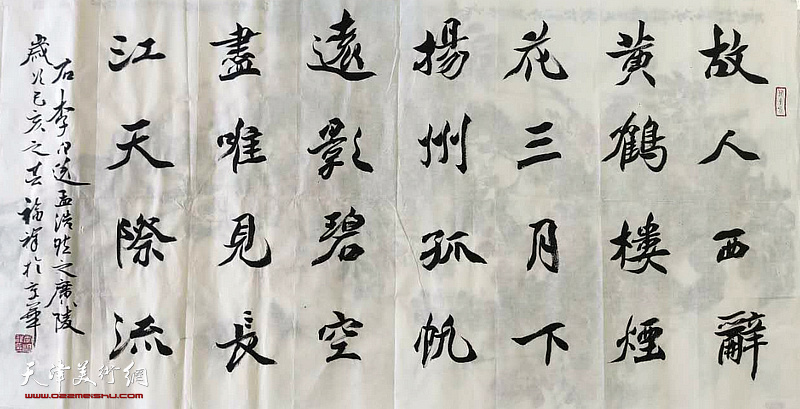 故人西辭
黄鶴樓煙
花三月下
揚州孤帆
遠影碧空
盡唯見長
江天際流
右李白送孟浩然之廣陵
歲次己亥之春福祥於京華
天津美术網
www.022meishu.com